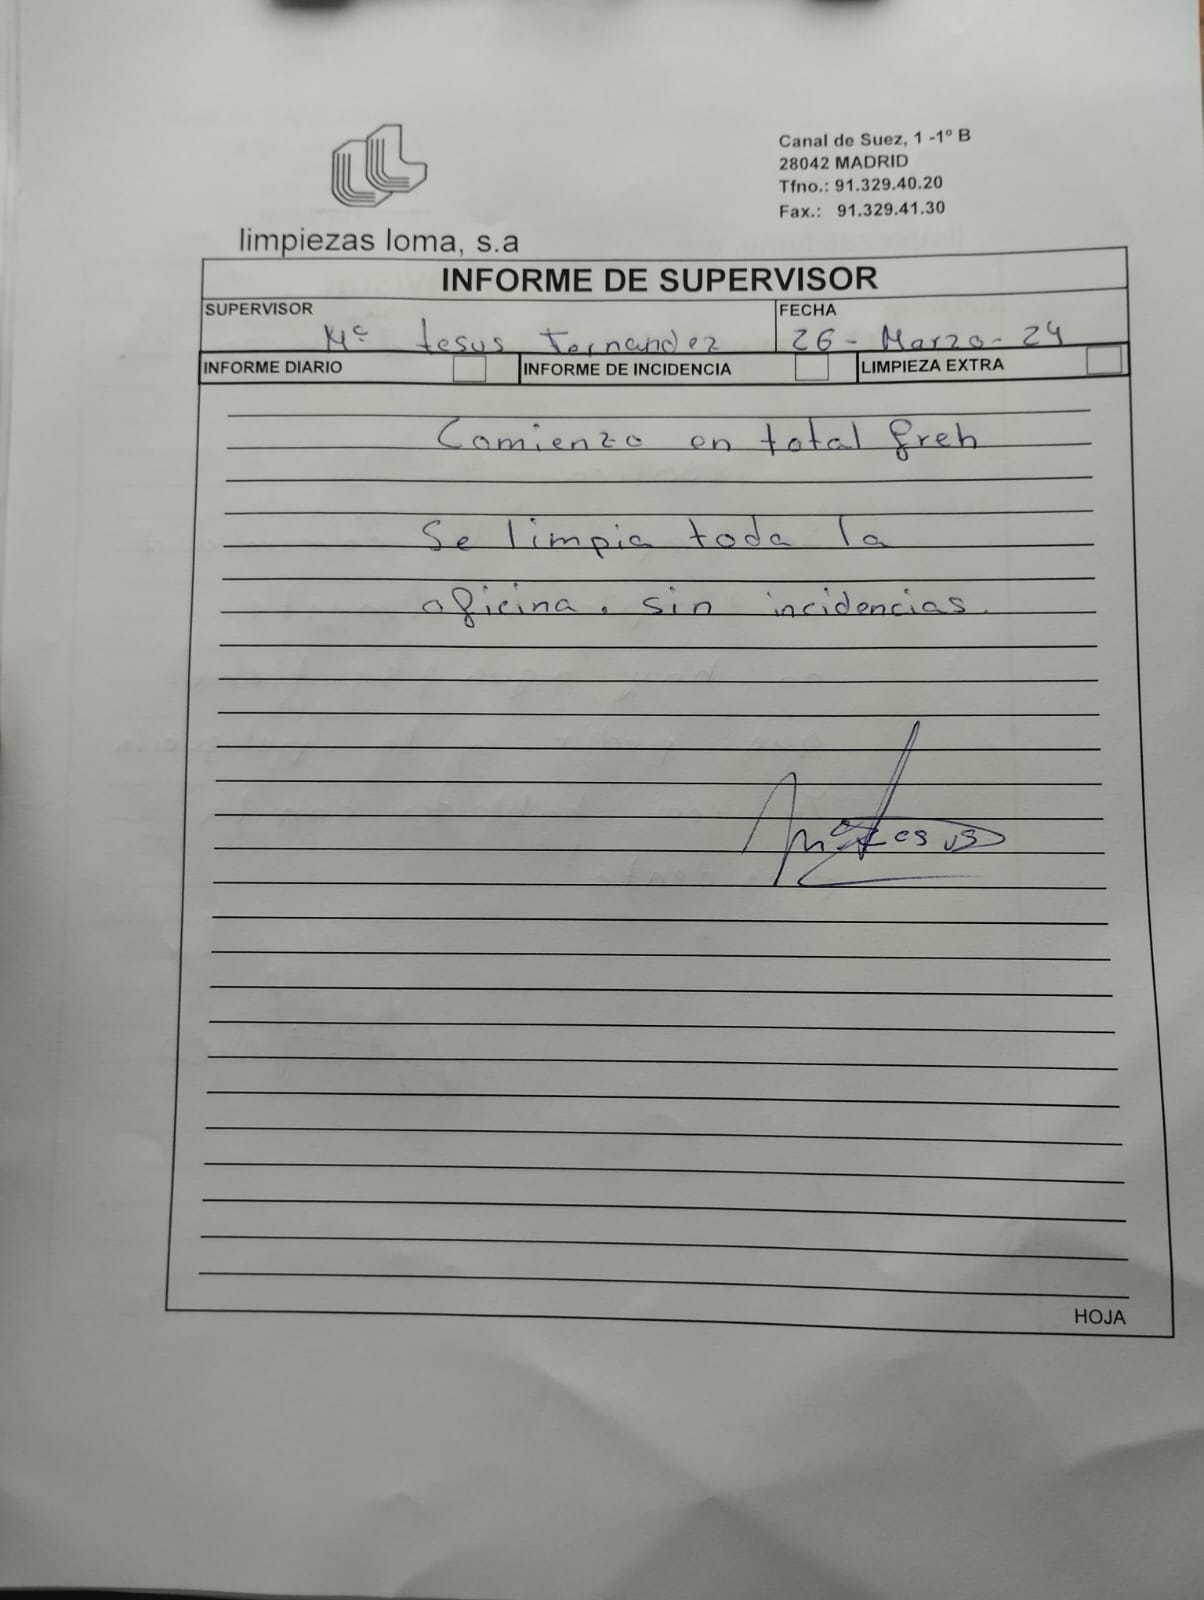 Canal de Suez, 1 -1º B
28042 MADRID
Tfno.: 91.329.40.20
Fax.: 91.329.41.30
limpiezas loma, s.a
INFORME DE SUPERVISOR
SUPERVISOR
Mª Jesus Fernandez
FECHA
26 - Marzo - 24
INFORME DIARIO
INFORME DE INCIDENCIA
LIMPIEZA EXTRA
Comienzo en total freh
Se limpia toda la
oficina. sin incidencias.
Mª Jesus
HOJA